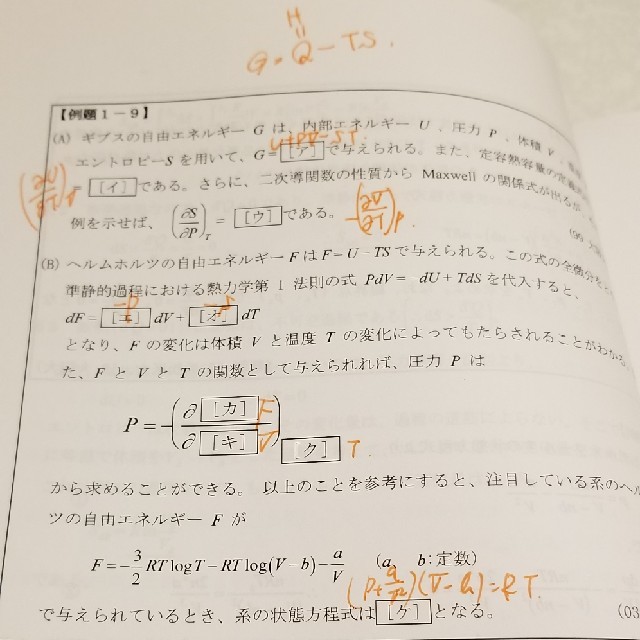 H
G = Q - TS.
【例題1-9】
(A) ギブスの自由エネルギー G は、内部エネルギー U 、圧力 P 、体積 V 、
U+PV-ST.
エントロピーS を用いて、G=［ア］で与えられる。また、定容熱容量の定義
(∂U/∂T)V =［イ］である。さらに、二次導関数の性質から Maxwell の関係式が出るが、
例を示せば、(∂S/∂P)T =［ウ］である。 -(∂V/∂T)P.
(B) ヘルムホルツの自由エネルギー F は F=U-TS で与えられる。この式の全微分
準静的過程における熱力学第 1 法則の式 PdV= -dU+TdS を代入すると、
-P -S
dF=［エ］dV+［オ］dT
となり、F の変化は体積 V と温度 T の変化によってもたらされることがわかる。
た、F と V と T の関数として与えられれば、圧力 P は
P=-(∂［カ］F/∂［キ］V)［ク］T.
から求めることができる。以上のことを参考にすると、注目している系のヘル
ツの自由エネルギー F が
F=-3/2 RT log T-RT log(V-b)-a/V (a, b:定数)
で与えられているとき、系の状態方程式は［ケ］となる。 (03